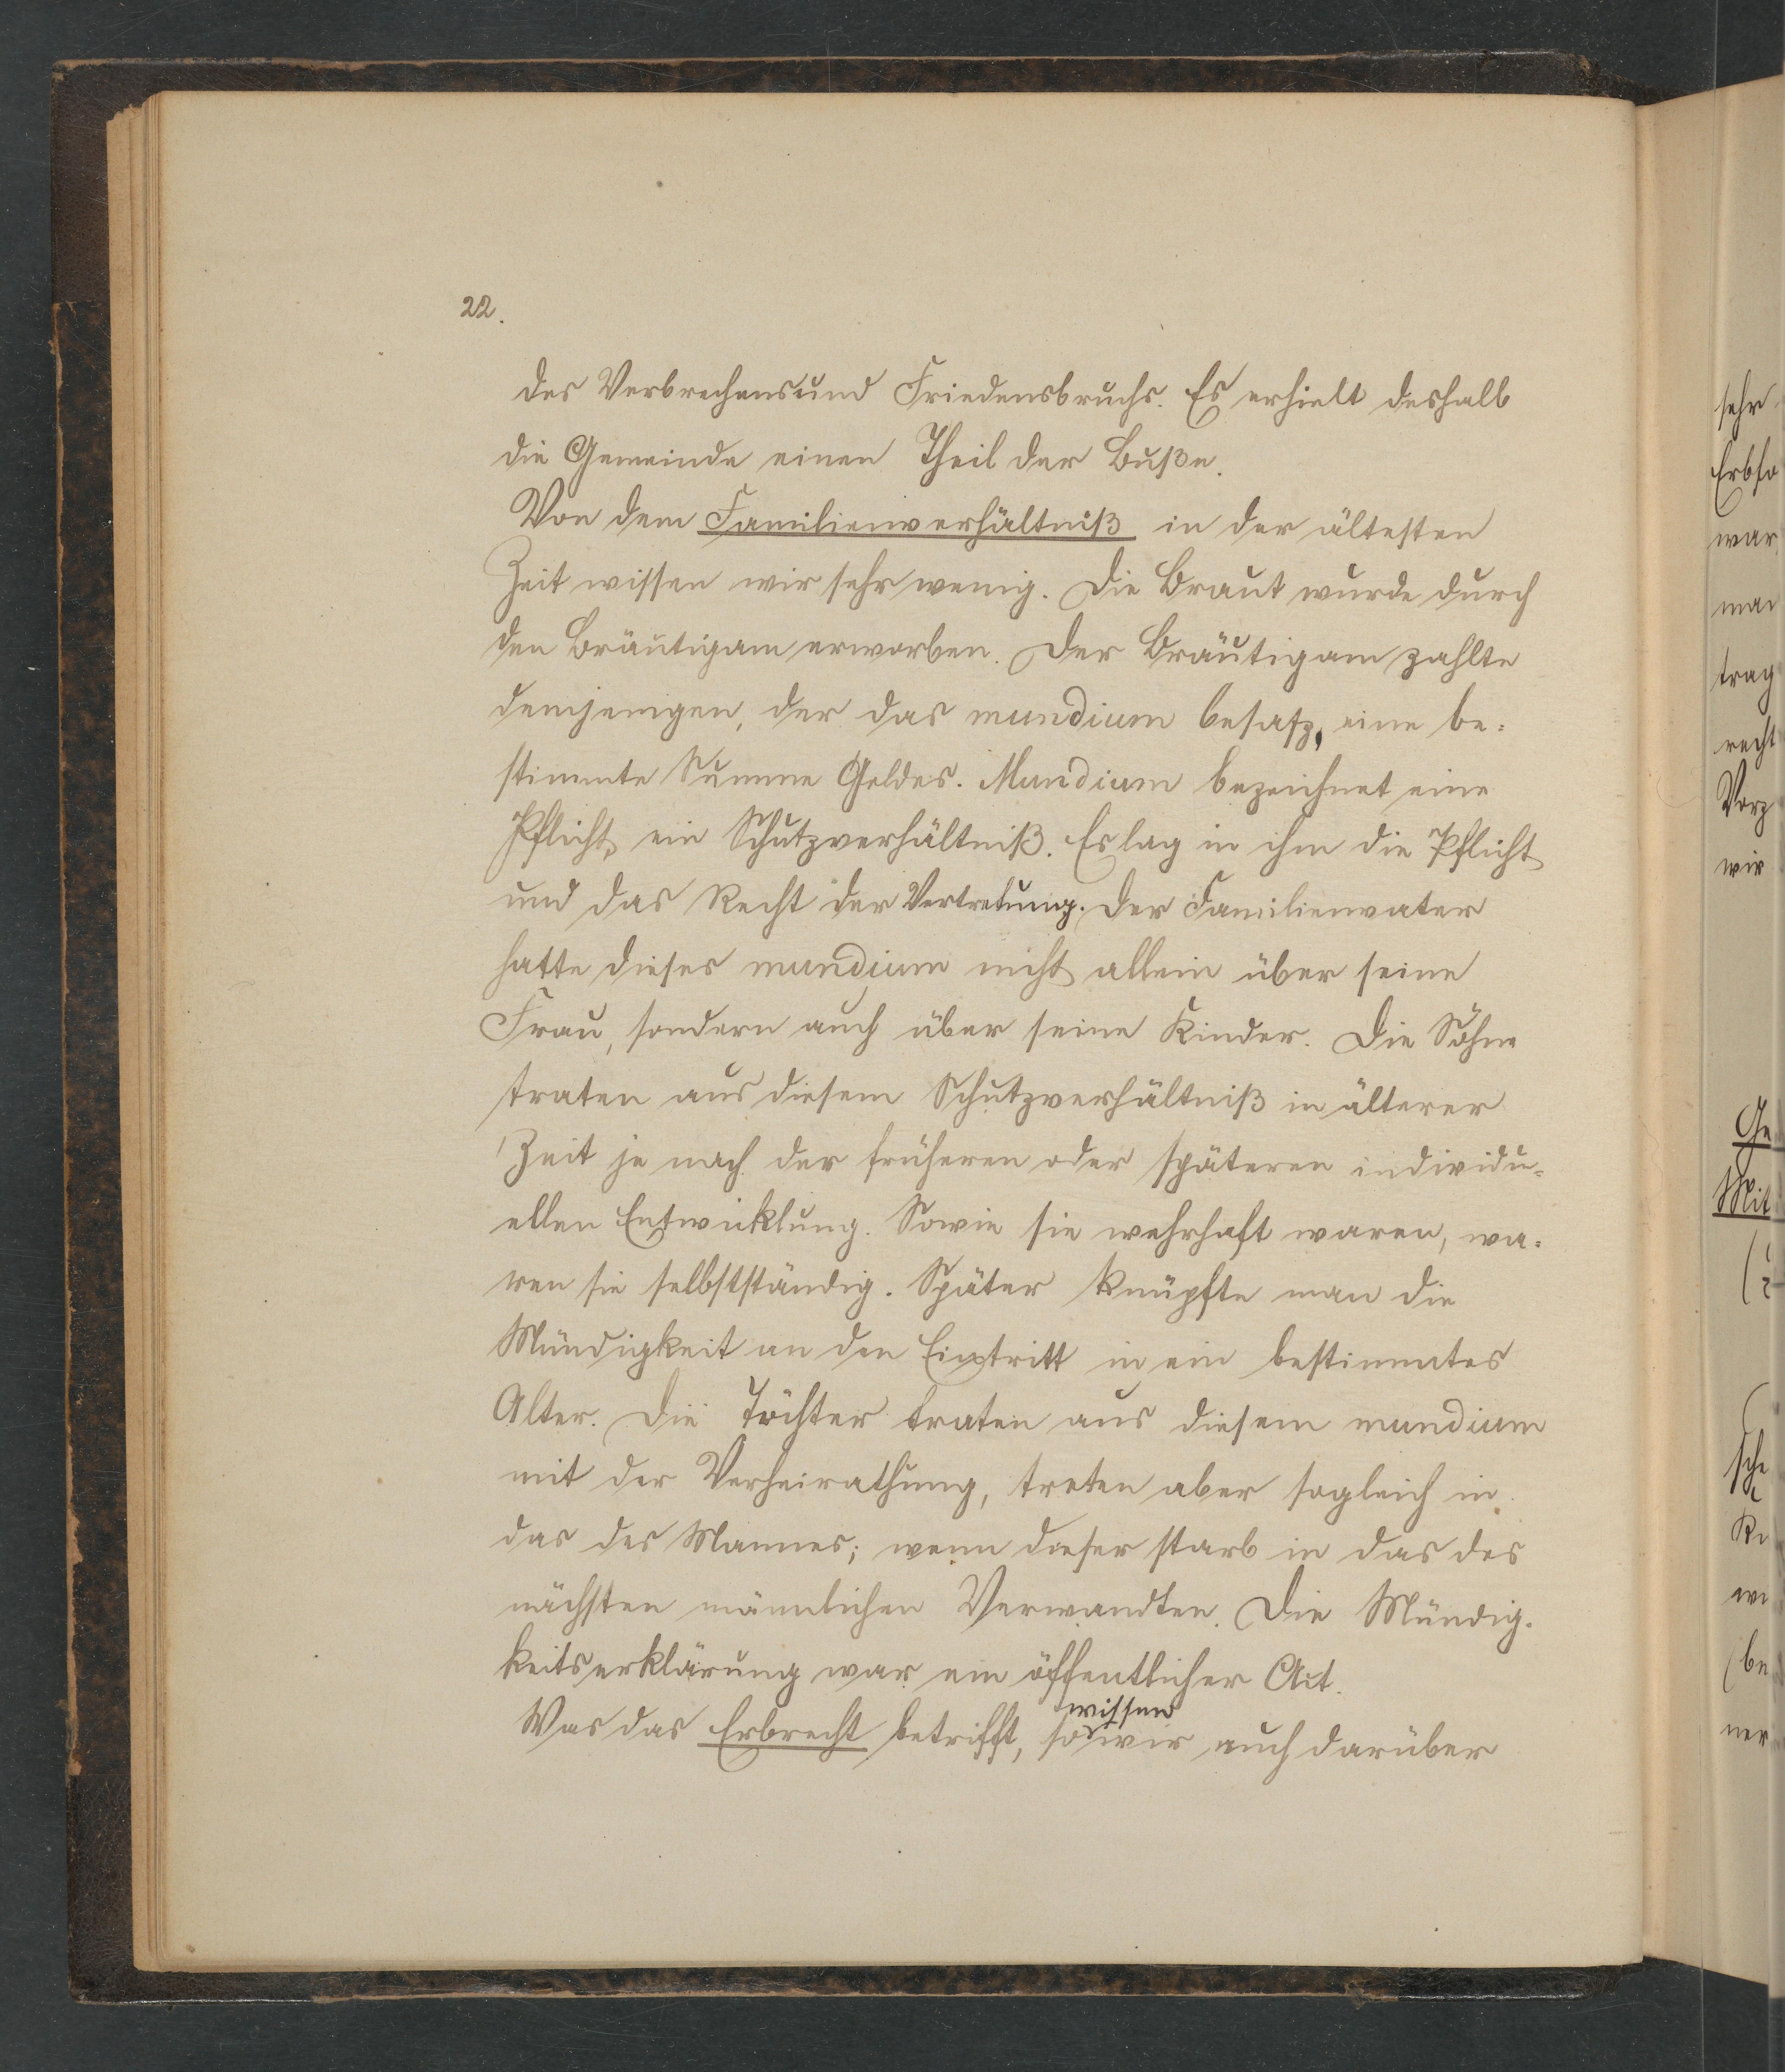 22.
des Verbrechens und Friedensbruchs. Es erhielt deshalb
die Gemeinde einen Theil der Buße.
Von dem Familienverhältniß in der ältesten
Zeit wissen wir sehr wenig. Die Braut wurde durch
den Bräutigam erworben. Der Bräutigam zahlte
demjenigen, der das mundium besaß, eine be-
stimmte Summe Geldes. Mundium bezeichnet eine
Pflicht, ein Schutzverhältniß. Es lag in ihm die Pflicht
und das Recht der Vertretung. Der Familienvater
hatte dieses mundium nicht allein über seine
Frau, sondern auch über seine Kinder. Die Söhne
traten aus diesem Schutzverhältniß in älterer
Zeit je nach der früheren oder späteren individu-
ellen Entwicklung. Sowie sie wehrhaft waren, wa-
ren sie selbstständig. Später knüpfte man die
Mündigkeit an den Eintritt in ein bestimmtes
Alter. Die Töchter traten aus diesem mundium
mit der Verheirathung, treten aber sogleich in
das des Mannes; wenn dieser starb in das des
nächsten männlichen Verwandten. Die Mündig-
keitserklärung war ein öffentlicher Act.
Was das Erbrecht betrifft, so wissen wir auch darüber
sehr
Erbfo
war
man
trag
recht
Vorz
wir
Ge
Mit
sche
be
ner